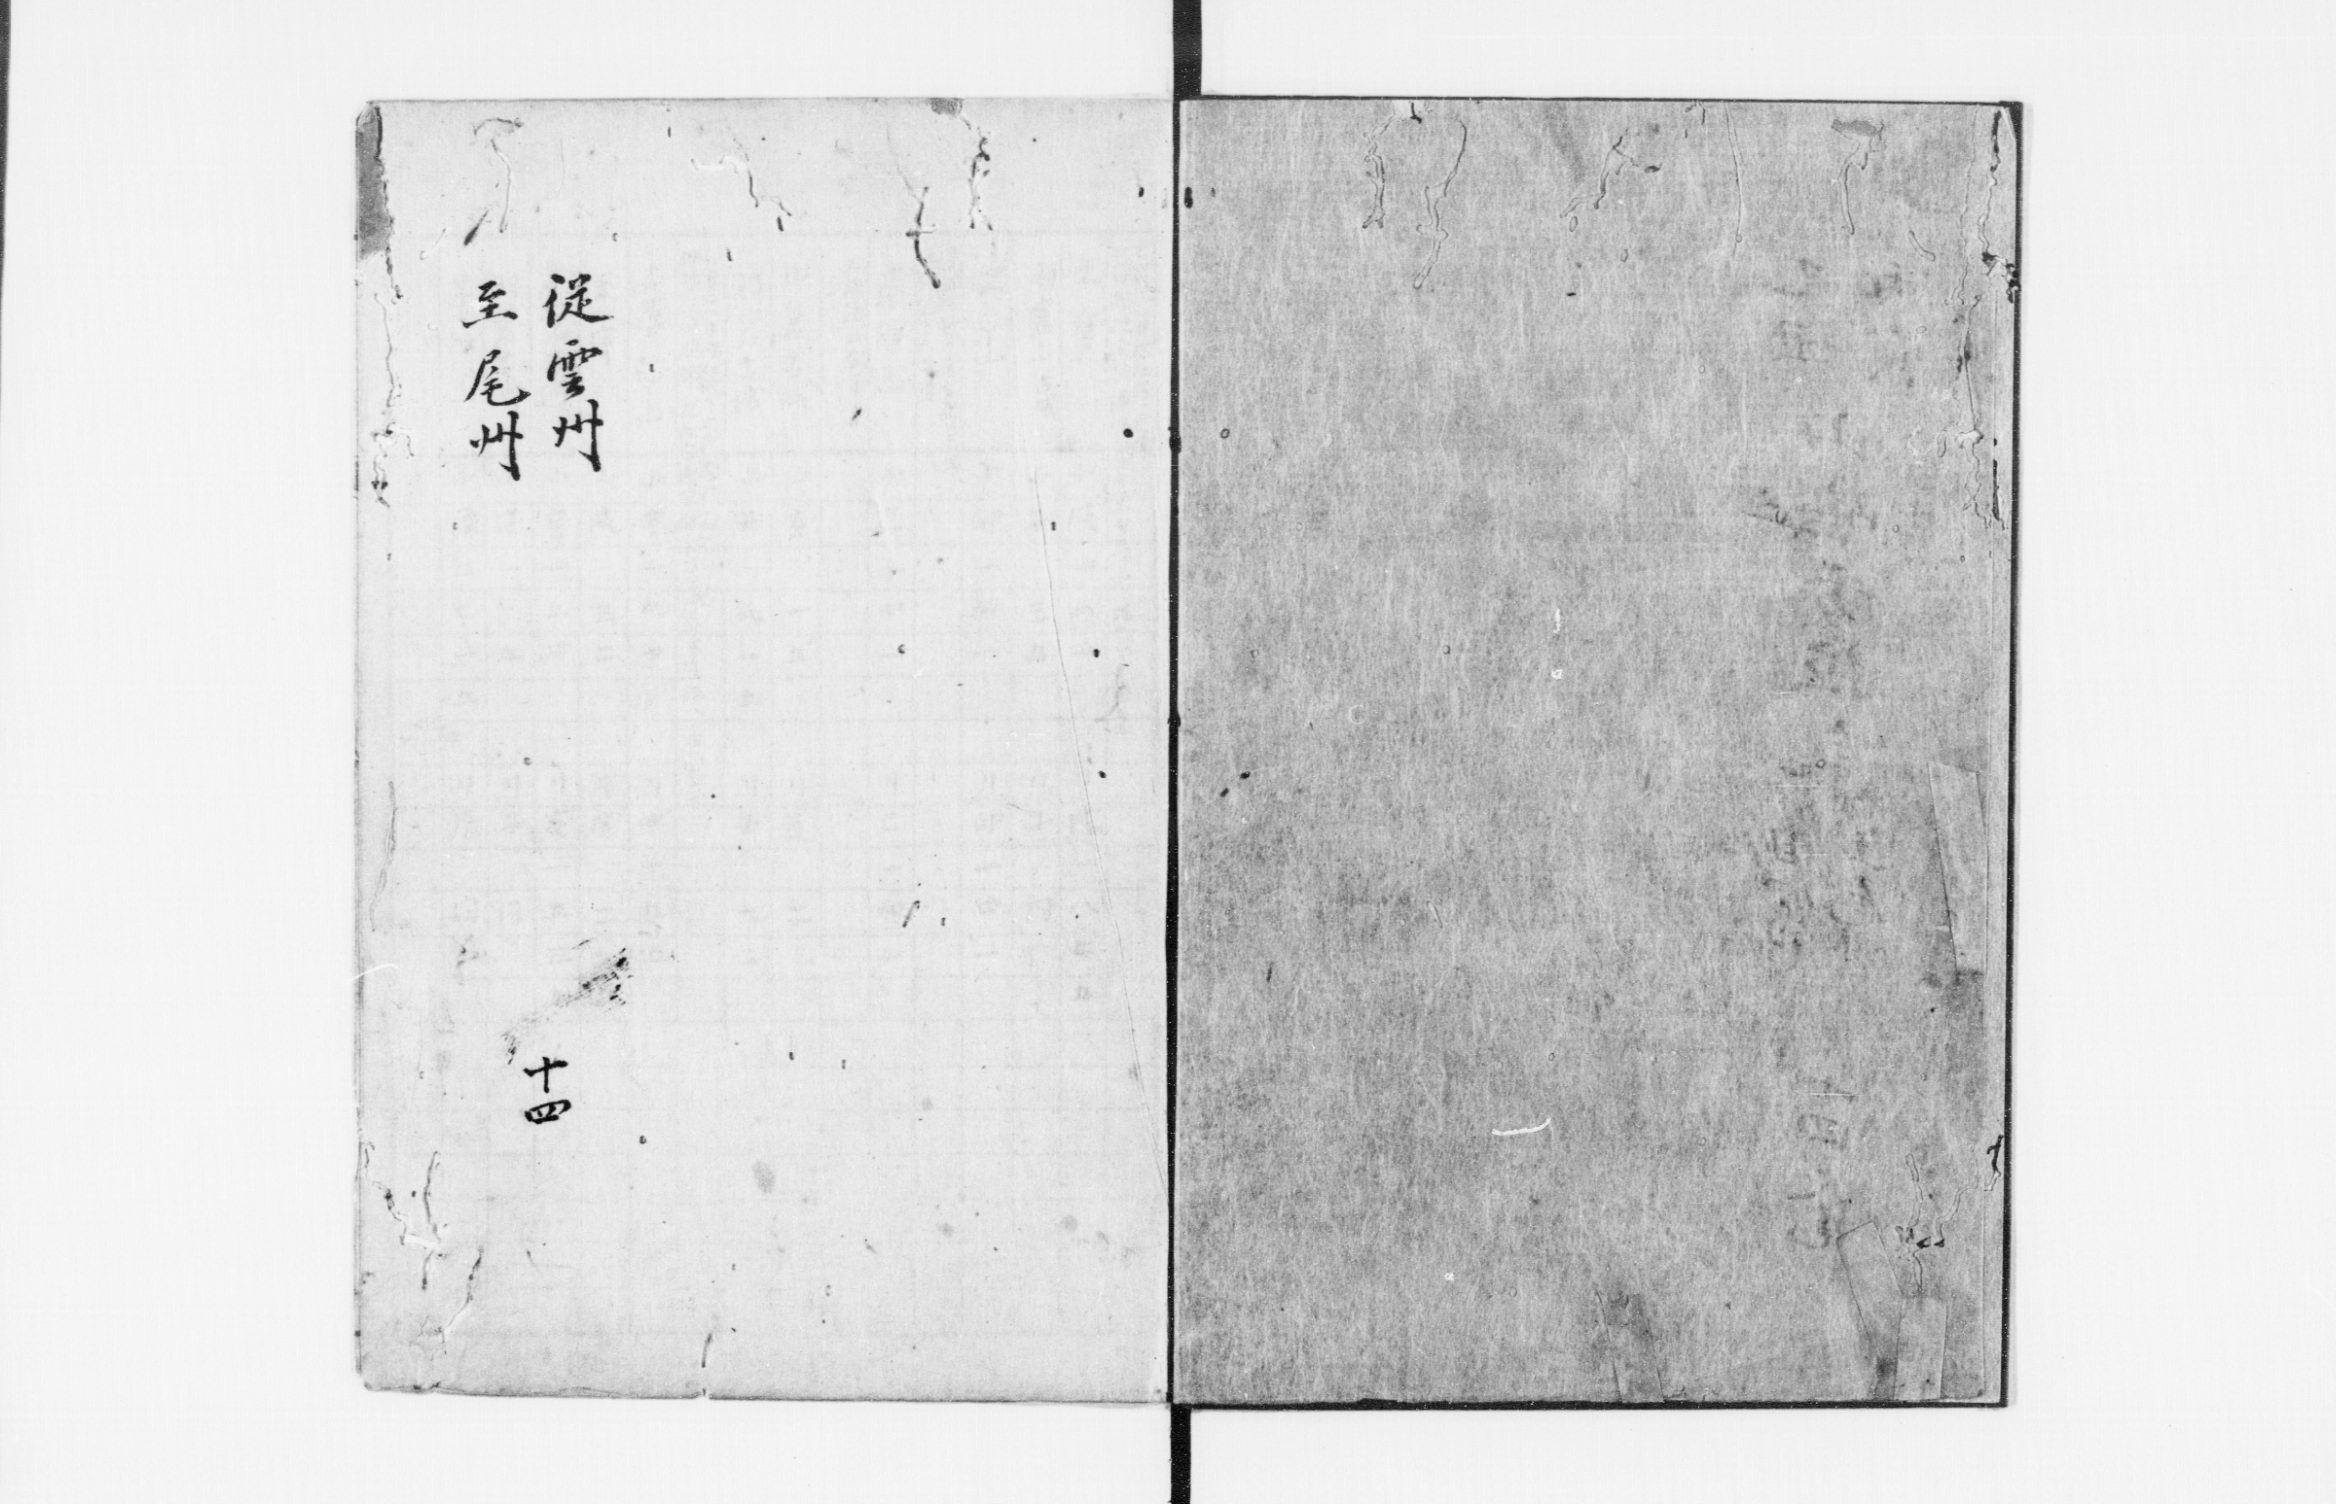 從雲州
至尾州
十四